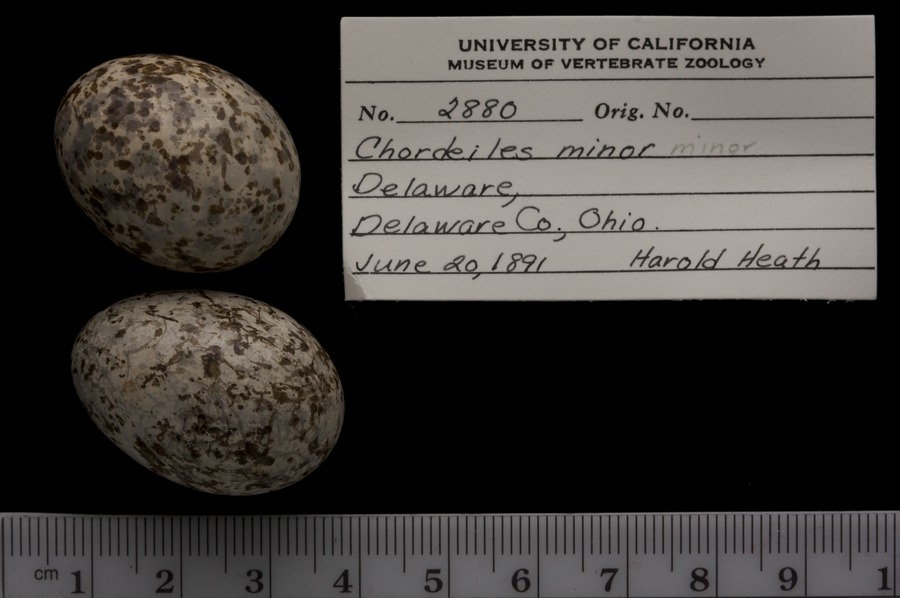 UNIVERSITY OF CALIFORNIA
MUSEUM OF VERTEBRATE ZOOLOGY
No. 2880 Orig. No.
Chordeiles minor minor
Delaware,
Delaware Co., Ohio.
June 20, 1891 Harold Heath
cm 1 2 3 4 5 6 7 8 9 1